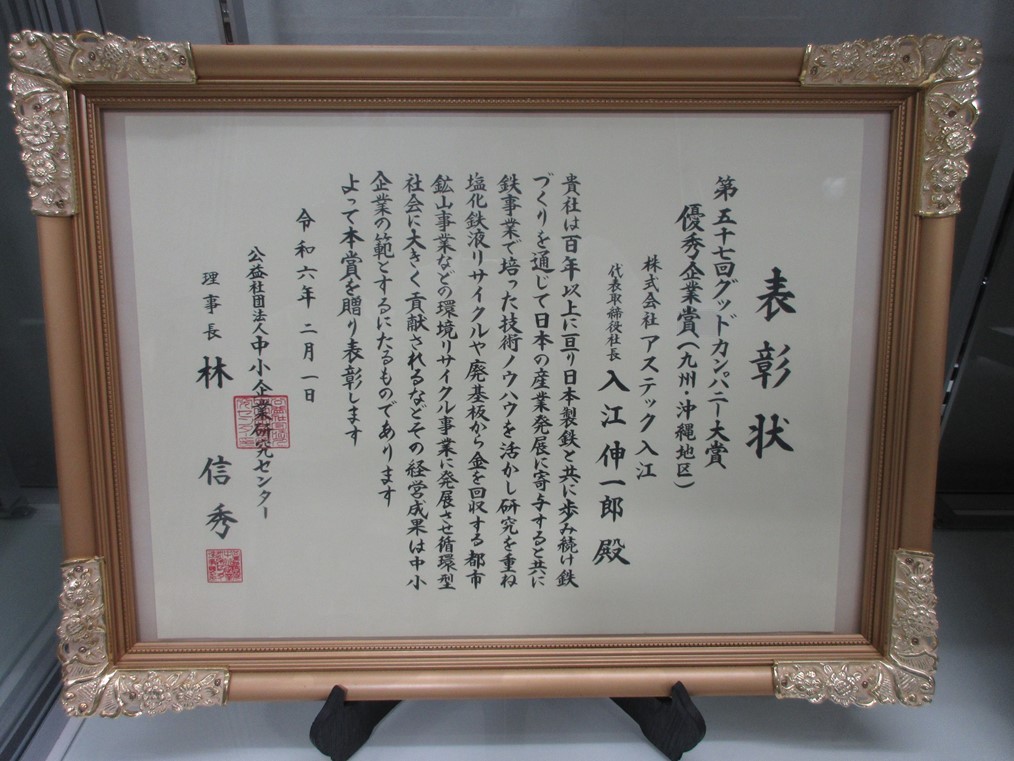 表彰状
第五十七回グッドカンパニー大賞
優秀企業賞（九州・沖縄地区）
株式会社アステック入江
代表取締役社長 入江伸一郎殿
貴社は百年以上に亘り日本製鉄と共に歩み続け鉄
づくりを通じて日本の産業発展に寄与すると共に
鉄事業で培った技術ノウハウを活かし研究を重ね
塩化鉄液リサイクルや廃基板から金を回収する都市
鉱山事業などの環境リサイクル事業に発展させ循環型
社会に大きく貢献されるなどその経営成果は中小
企業の範とするにたるものであります
よって本賞を贈り表彰します
令和六年二月一日
公益社団法人中小企業研究センター
理事長 林 信秀